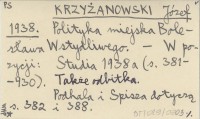 PS
KRZYŻANOWSKI Józef
1938. Polityka miejska Bole-
sława Wstydliwego. – W po-
zycji: Studia 1938a (s. 381-
-930). Także odbitka.
Podhala i Spisza dotyczą
s. 382 i 388.